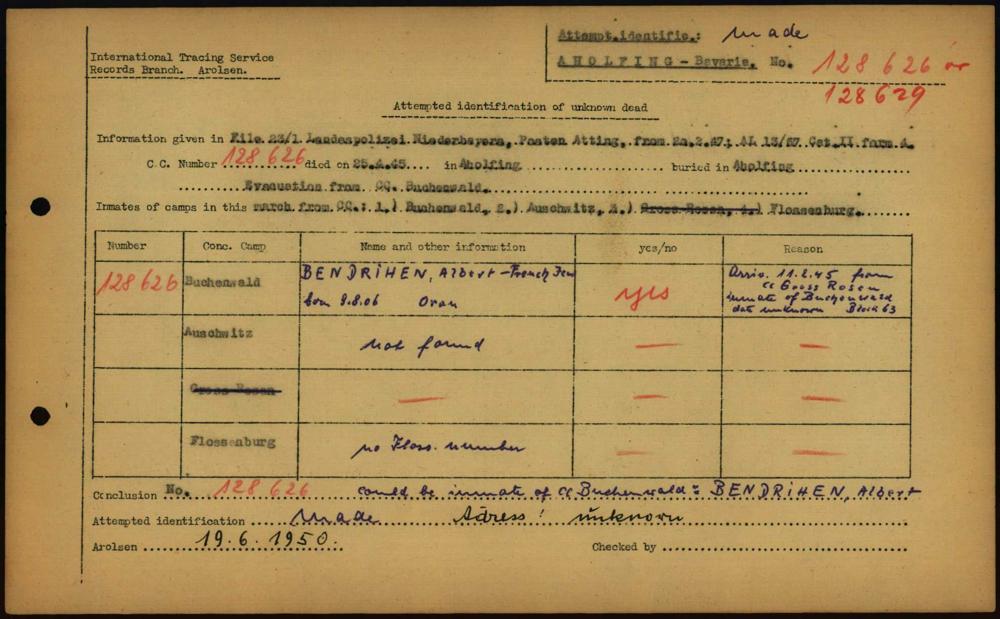 Attempt.identific.: made
AHOLFING - Bavaria. No. 128 626 or
128 629
International Tracing Service
Records Branch. Arolsen.
Attempted identification of unknown dead
Information given in File 23/1 Landespolizei Niederbayern, Posten Atting, from
C.C. Number 128 626 died on 25.4.45 in Aholfing buried in Aholfing
Evacuation from CC. Buchenwald.
Inmates of camps in this march from CC.: 1.) Buchenwald, 2.) Auschwitz, 3.) Gross Rosen, 4.) Flossenburg.
Number Conc. Camp Name and other information yes/no Reason
128 626 Buchenwald BENDRIHEN, Albert - French Jew
born 9.8.06 Oran yes
Arriv. 11.2.45 from
CC Gross Rosen
inmate of Buchenwald
dat unknown Block 63
Auschwitz not found — —
Gross Rosen — — —
Flossenburg no Floss. number — —
Conclusion No. 128 626 could be inmate of CC Buchenwald = BENDRIHEN, Albert
Attempted identification made Adress: unknown
Arolsen 19.6.1950. Checked by